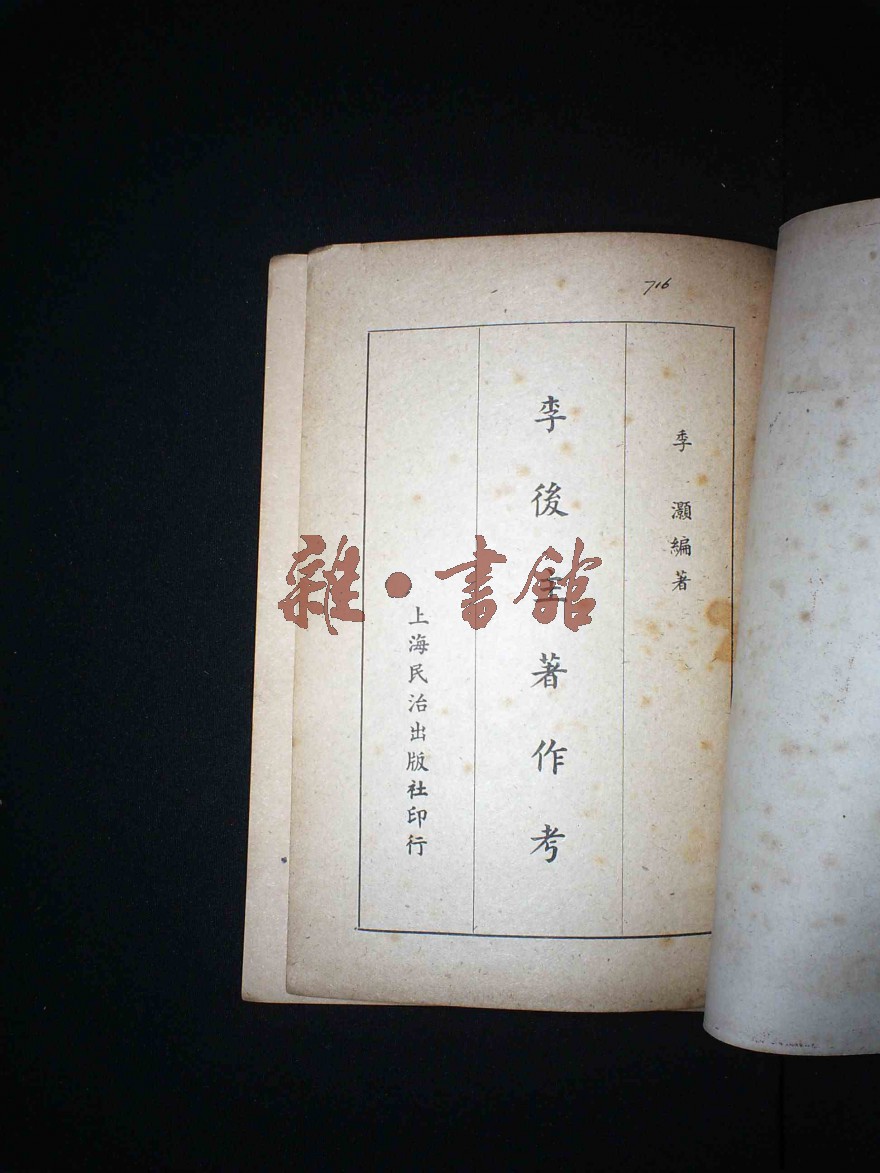 716
季灝編著
李後主著作考
上海民治出版社印行
雜·書館